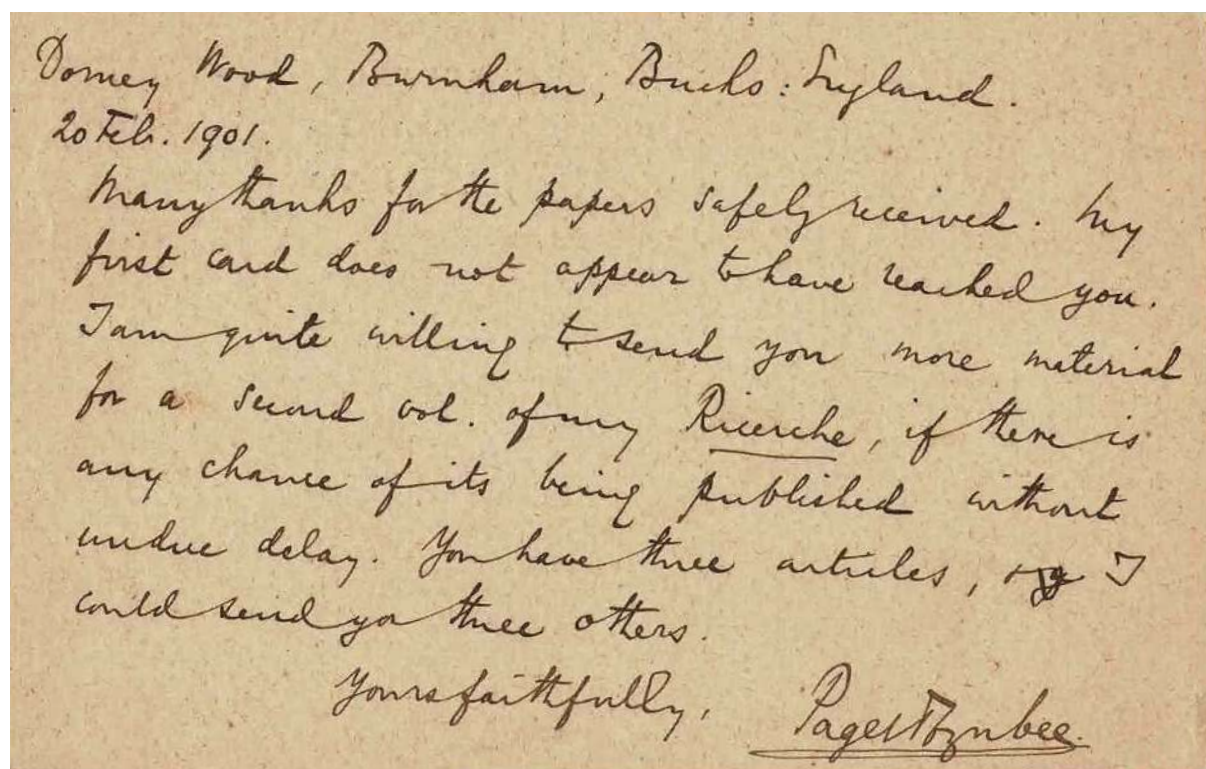 Dorney Wood, Burnham, Bucks: England.
20 Feb. 1901.
Many thanks for the papers safely received. My
first card does not appear to have reached you.
I am quite willing to send you more material
for a second vol. of my Ricerche, if there is
any chance of its being published without
undue delay. You have three articles, & I
could send you three others.
Yours faithfully,
Paget Toynbee.